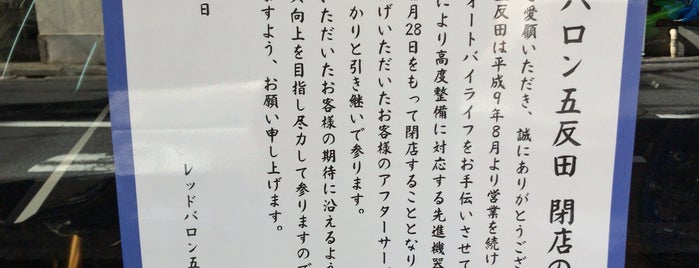 バロン五反田 閉店の
愛顧いただき、誠にありがとうござ
反田は平成9年8月より営業を続け
オートバイライフをお手伝いさせて
により高度整備に対応する先進機器
月28日をもって閉店することとなり
げいただいたお客様のアフターサー
かりと引き継いで参ります。
いただいたお客様の期待に沿えるよう
向上を目指し尽力して参りますので
ますよう、お願い申し上げます。
日
レッドバロン五